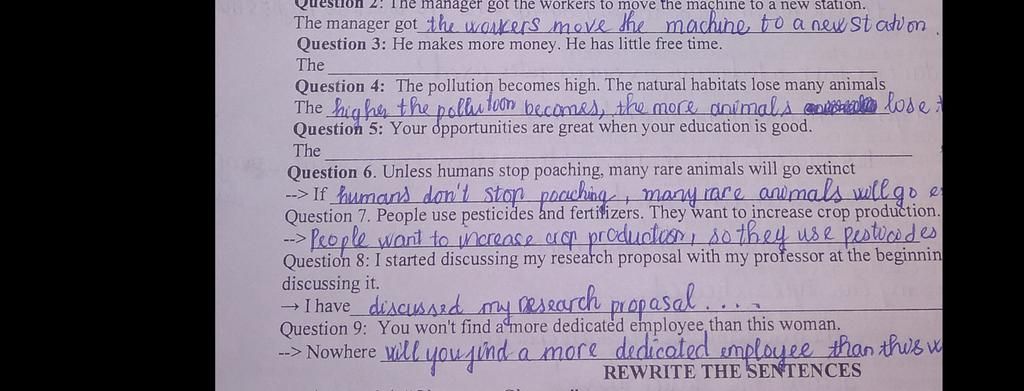 Question 2: The manager got the workers to move the machine to a new station.
The manager got the workers move the machine to a new station.
Question 3: He makes more money. He has little free time.
The
Question 4: The pollution becomes high. The natural habitats lose many animals
The higher the pollution becomes, the more animals lose
Question 5: Your opportunities are great when your education is good.
The
Question 6. Unless humans stop poaching, many rare animals will go extinct
--> If humans don't stop poaching, many rare animals will go
Question 7. People use pesticides and fertilizers. They want to increase crop production.
--> People want to increase crop production, so they use pesticodes
Question 8: I started discussing my research proposal with my professor at the
discussing it.
→ I have discussed my research propasal....
Question 9: You won't find a more dedicated employee than this woman.
--> Nowhere will you find a more dedicated employee than this
REWRITE THE SENTENCES